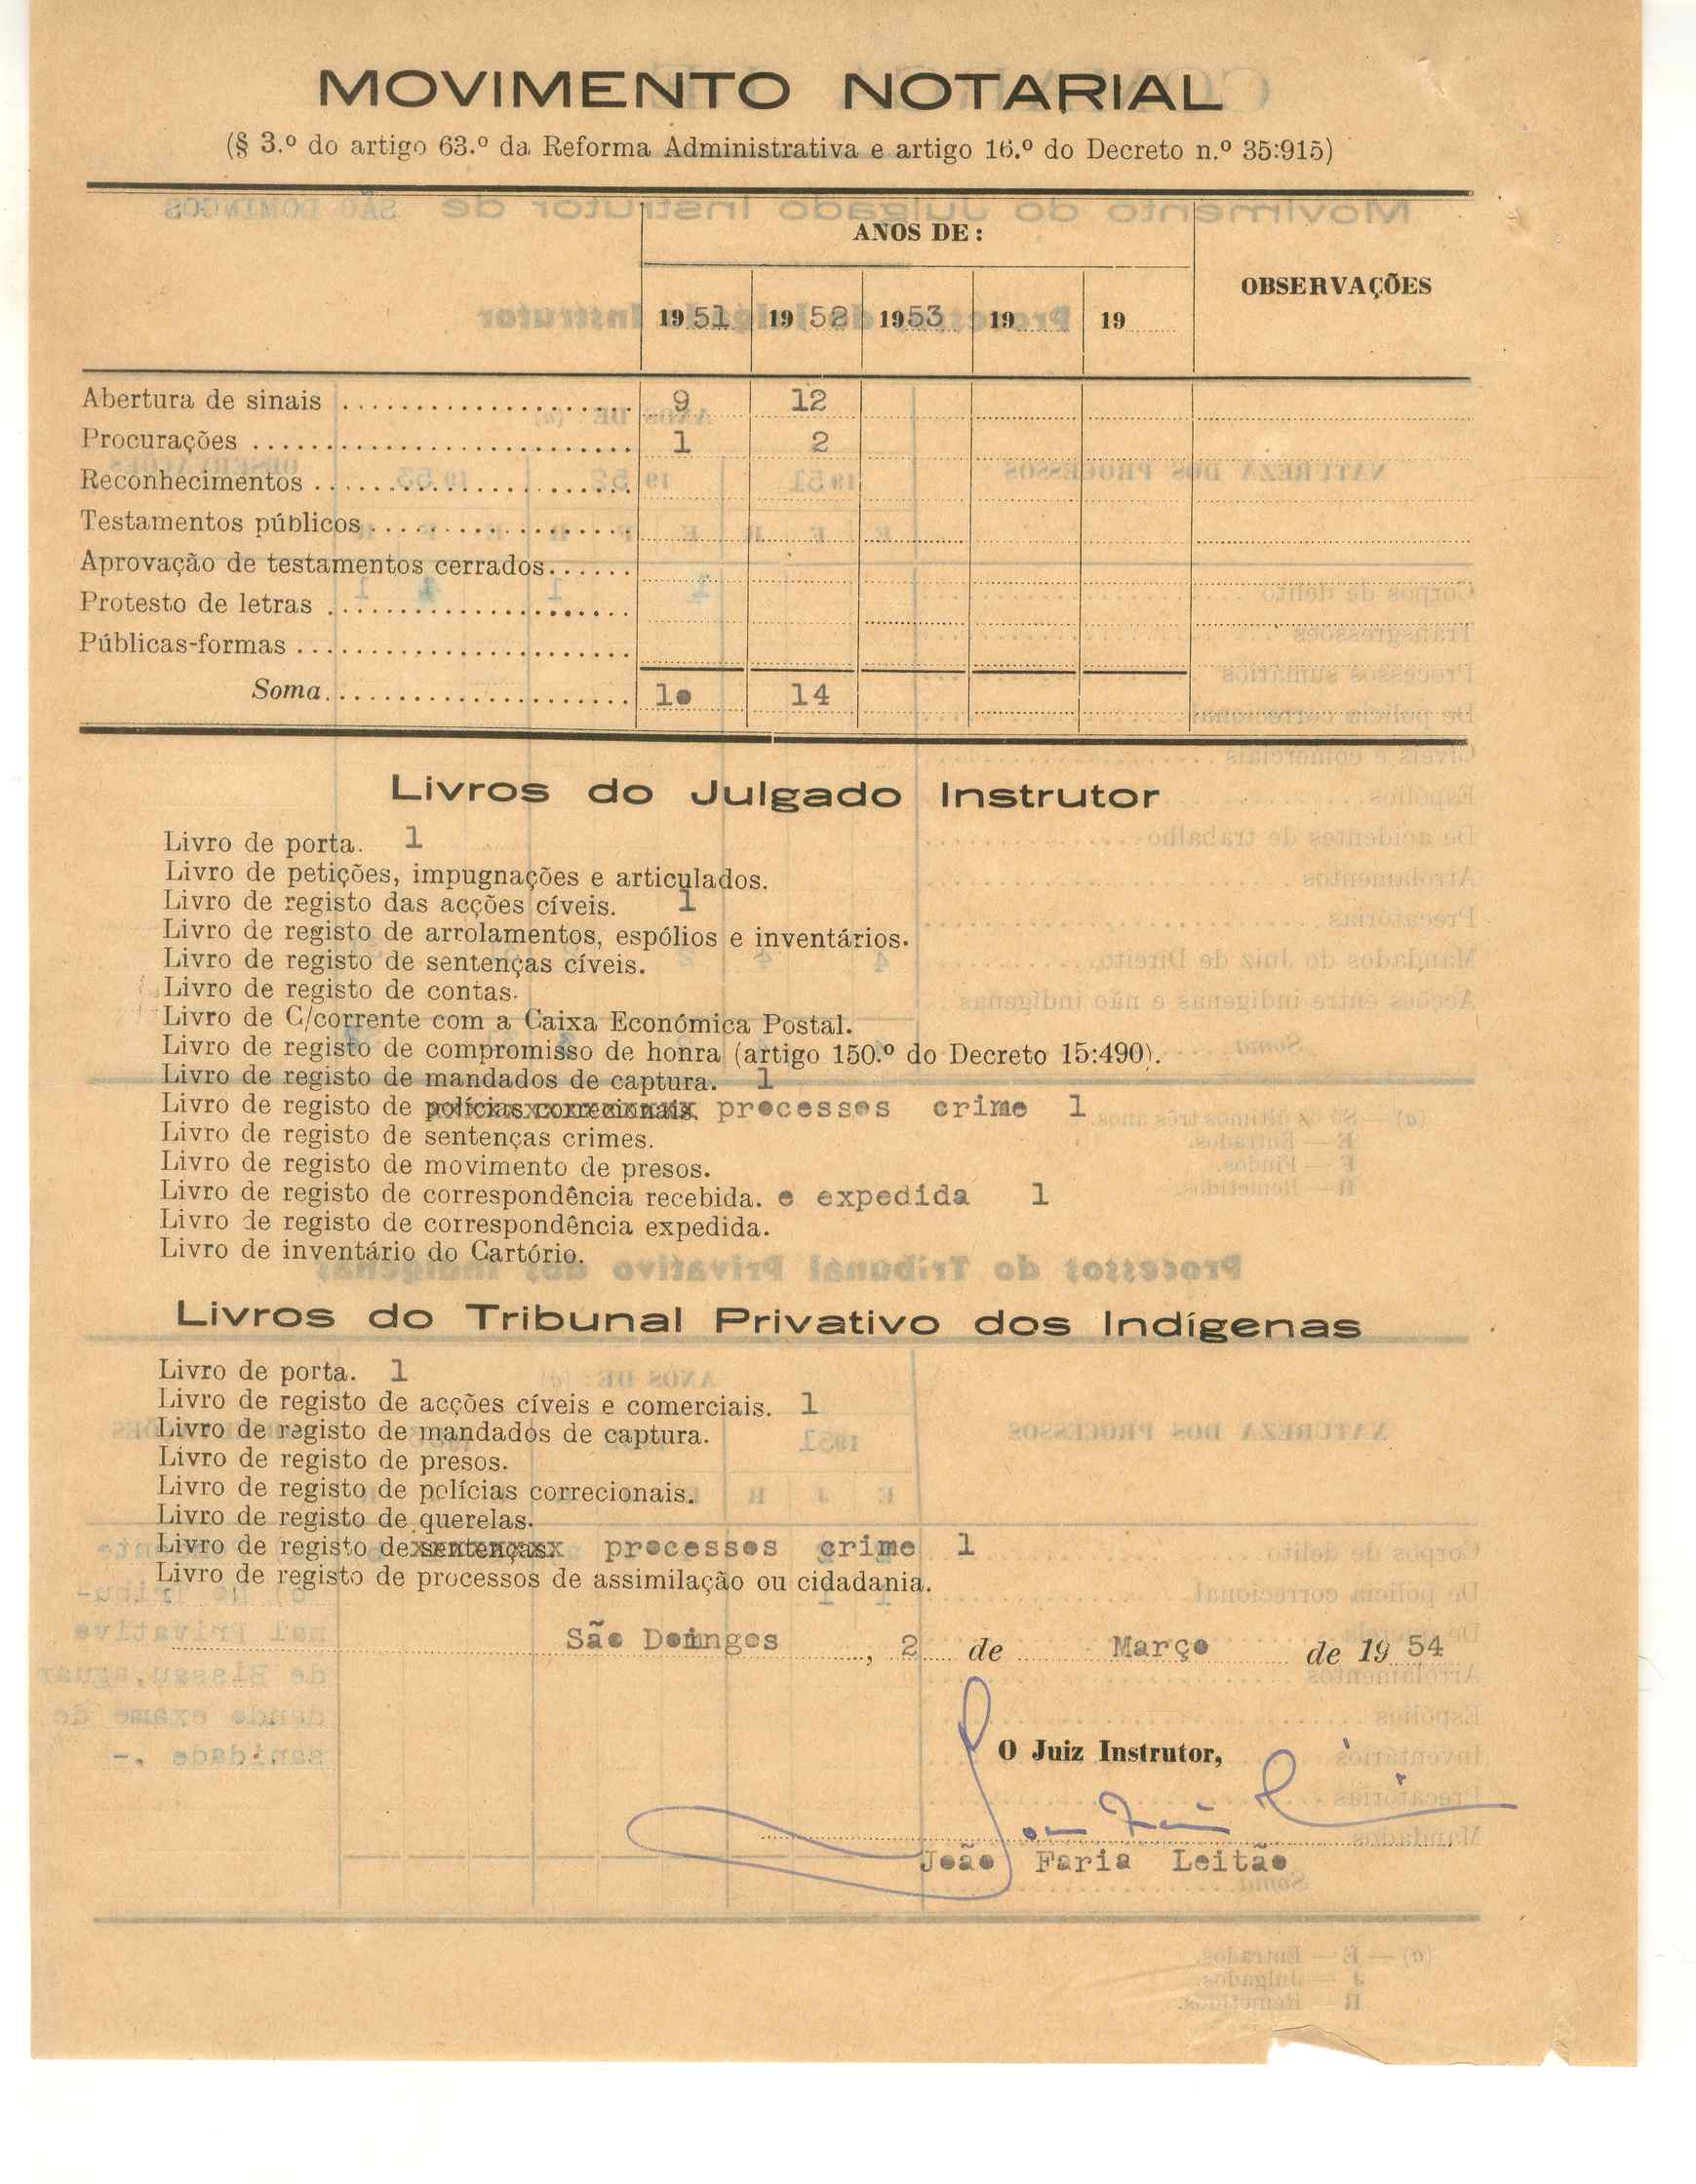 MOVIMENTO NOTARIAL
(§ 3.º do artigo 63.º da Reforma Administrativa e artigo 16.º do Decreto n.º 35:915)
ANOS DE:
OBSERVAÇÕES
19 51 19 52 19 53 19 19
Abertura de sinais 9 12
Procurações 1 2
Reconhecimentos
Testamentos públicos
Aprovação de testamentos cerrados
Protesto de letras
Públicas-formas
Soma 10 14
Livros do Julgado Instrutor
Livro de porta. 1
Livro de petições, impugnações e articulados.
Livro de registo das acções cíveis. 1
Livro de registo de arrolamentos, espólios e inventários.
Livro de registo de sentenças cíveis.
Livro de registo de contas.
Livro de C/corrente com a Caixa Económica Postal.
Livro de registo de compromisso de honra (artigo 150.º do Decreto 15:490).
Livro de registo de mandados de captura. 1
Livro de registo de polícias correcionais processos crime 1
Livro de registo de sentenças crimes.
Livro de registo de movimento de presos.
Livro de registo de correspondência recebida. e expedida 1
Livro de registo de correspondência expedida.
Livro de inventário do Cartório.
Livros do Tribunal Privativo dos Indígenas
Livro de porta. 1
Livro de registo de acções cíveis e comerciais. 1
Livro de registo de mandados de captura.
Livro de registo de presos.
Livro de registo de polícias correcionais.
Livro de registo de querelas.
Livro de registo de sentenças processos crime 1
Livro de registo de processos de assimilação ou cidadania.
São Domingos, 2 de Março de 19 54
O Juiz Instrutor,
João Faria Leitão